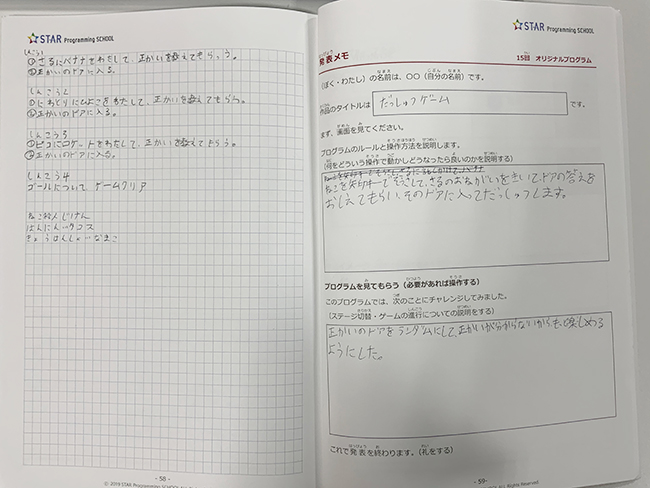 STAR Programming SCHOOL
しんこう1
①さるにバナナをわたして、正かいを教えてもらう。
②正かいのドアに入る。
しんこう2
①にわとりにひよこをわたして、正かいを教えてもらう。
②正かいのドアに入る。
しんこう3
①ピコにロケットをわたして、正かいを教えてもらう。
②正かいのドアに入る。
しんこう4
ゴールについて、ゲームクリア
ねこ殺人じけん
はんにん
- 58 -
© 2019 STAR Programming SCHOOL
STAR Programming SCHOOL
発表メモ
15回 オリジナルプログラム
(ぼく・わたし)の名前は、○○(自分の名前)です。
作品のタイトルは だっしゅつゲーム です。
まず、画面を見てください。
プログラムのルールと操作方法を説明します。
(何をどういう操作で動かしどうなったら良いのかを説明する)
ねこを矢印キーでそうさして、さるのおねがいをきいて、ドアの答えを
おしえてもらい、そのドアに入ってだっしゅつします。
プログラムを見てもらう(必要があれば操作する)
このプログラムでは、次のことにチャレンジしてみました。
(ステージ切替・ゲームの進行についての説明をする)
正かいのドアをランダムにして、正かいが分からないからも楽しめる
ようにした。
これで発表を終わります。(礼をする)
- 59 -
All Rights Reserved.